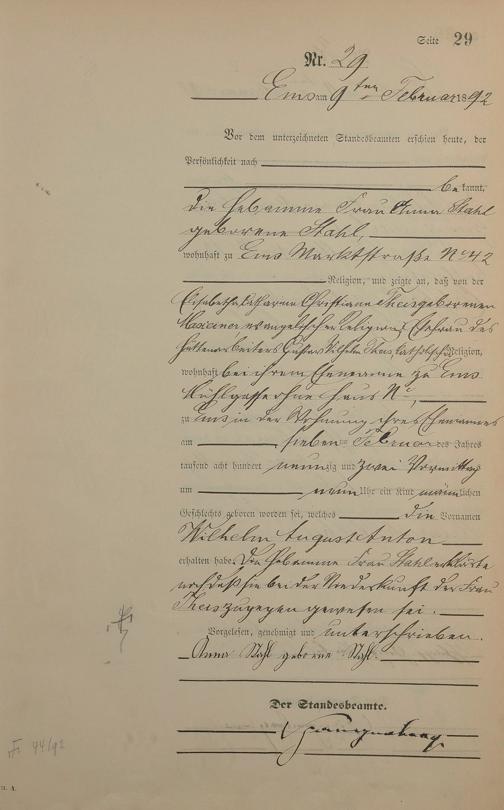 Seite 29
Nr. 29.
Ems am 9ten Februar 1892
Vor dem unterzeichneten Standesbeamten erschien heute, der
Persönlichkeit nach
bekannt,
die Hebamme Frau Anna Stahl
geborene Stahl,
wohnhaft zu Ems Marktstraße No 42
Religion, und zeigte an, daß von der
Elisabethe Katharine Christiane Theis geborenen
evangelischer Religion, Ehefrau des
Hüttenarbeiters Gustav Wilhelm Theis, katholischer Religion,
wohnhaft bei ihrem Ehemanne zu Ems
Mühlgasse ohne Haus No,
zu Ems in der Wohnung ihres Ehemannes
am sieben ten Februar des Jahres
tausend acht hundert neunzig und zwei Vormittag
um neun Uhr ein Kind männlichen
Geschlechts geboren worden sei, welches die Vornamen
Wilhelm August Anton
erhalten habe. Die Hebamme Frau Stahl erklärte
noch daß sie bei der Niederkunft der Frau
Theis zugegen gewesen sei.
Vorgelesen, genehmigt und unterschrieben.
Anna Stahl geborne Stahl.
Der Standesbeamte.
44/92